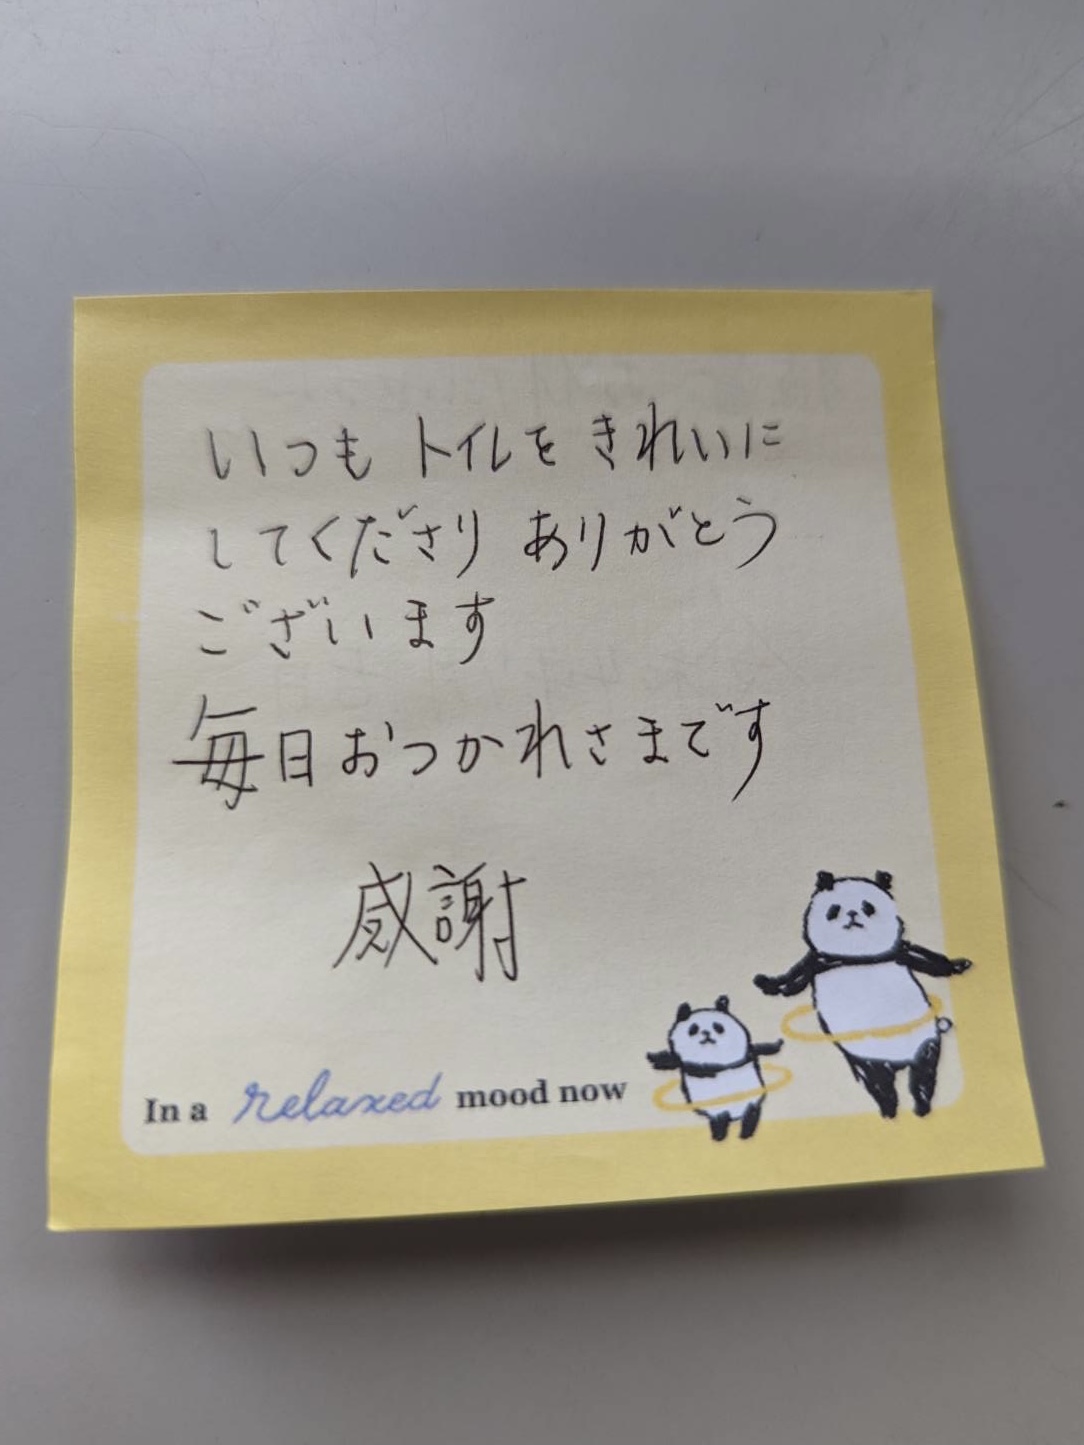 いつも トイレを きれいに
してくださり ありがとう
ございます
毎日おつかれさまです
感謝
In a relaxed mood now